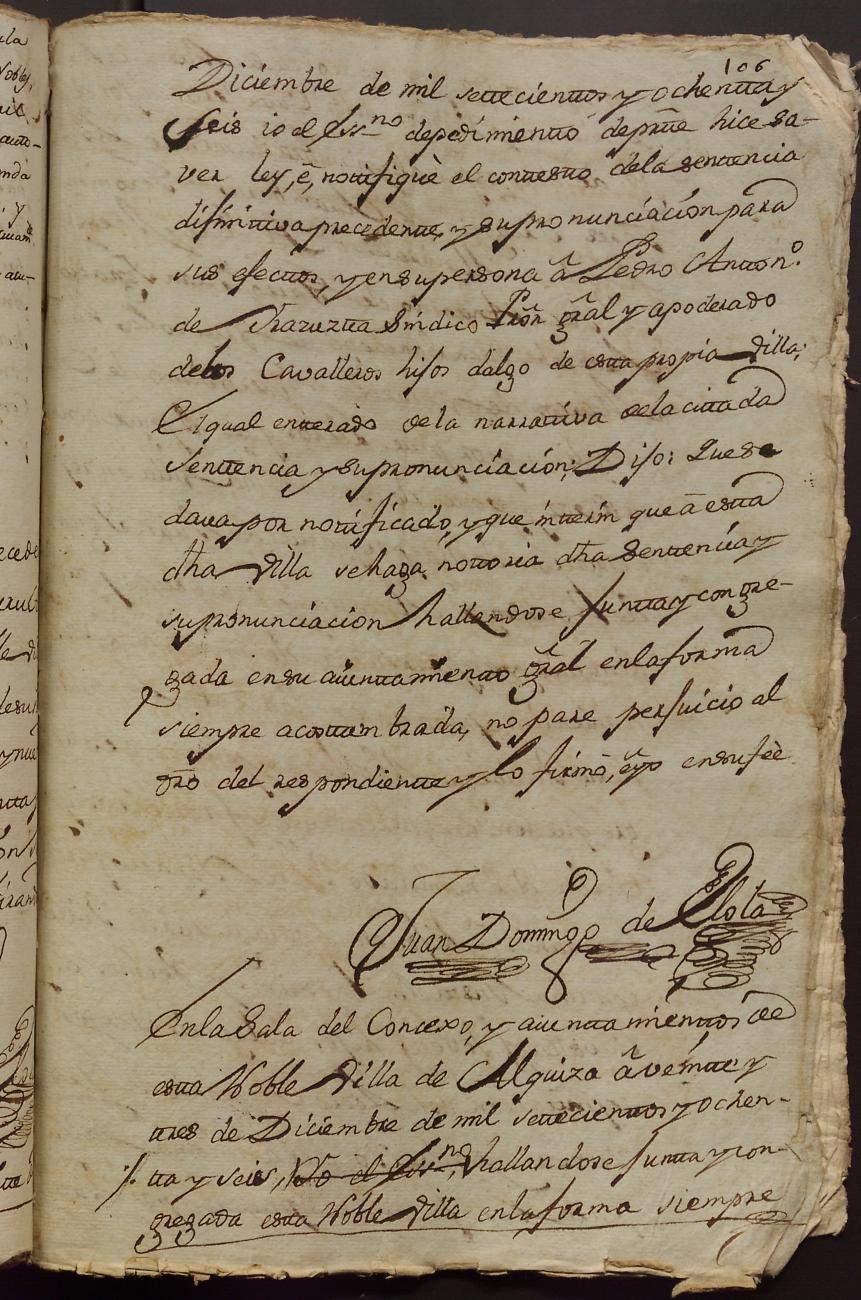 106
Diciembre de mil settecienttos y ochentta y
Seis io el Essno depedimientto deptte hice sa-
ver ley, é, nottifiquè el conttestto dela senttencia
difinittiva precedentte, y supronunciación para
sus efecttos, y ensupersona â Pedro Antton.º
de Yrazuztta Síndico Prõr grâl y apoderado
delos Cavalleros hijos dalgo de estta propia Villa;
El qual entterado de la narrattiva dela cittada
Senttencia y supronunciación; Dijo: Quese
dava por nottificado, y que ínterin que â estta
dha Villa sehaga nottoria dha Senttencia y
supronunciacion hallandose Juntta y congre-
gada ensu aiunttamientto grâl enlaforma
siempre acosttumbrada, no pare perjuicio al
dro del respondientte y lo firmó, éyo ensufèe
Juan Domingo de Elola
Enla Sala del Concexo, y aiunttamienttos de
estta Noble Villa de Alquiza â veíntte y
ttres de Diciembre de mil settecienttos y ochen-
tta y seis, Yo el Essno, hallandose Juntta y con-
gregada estta Noble Villa enlaforma siempre